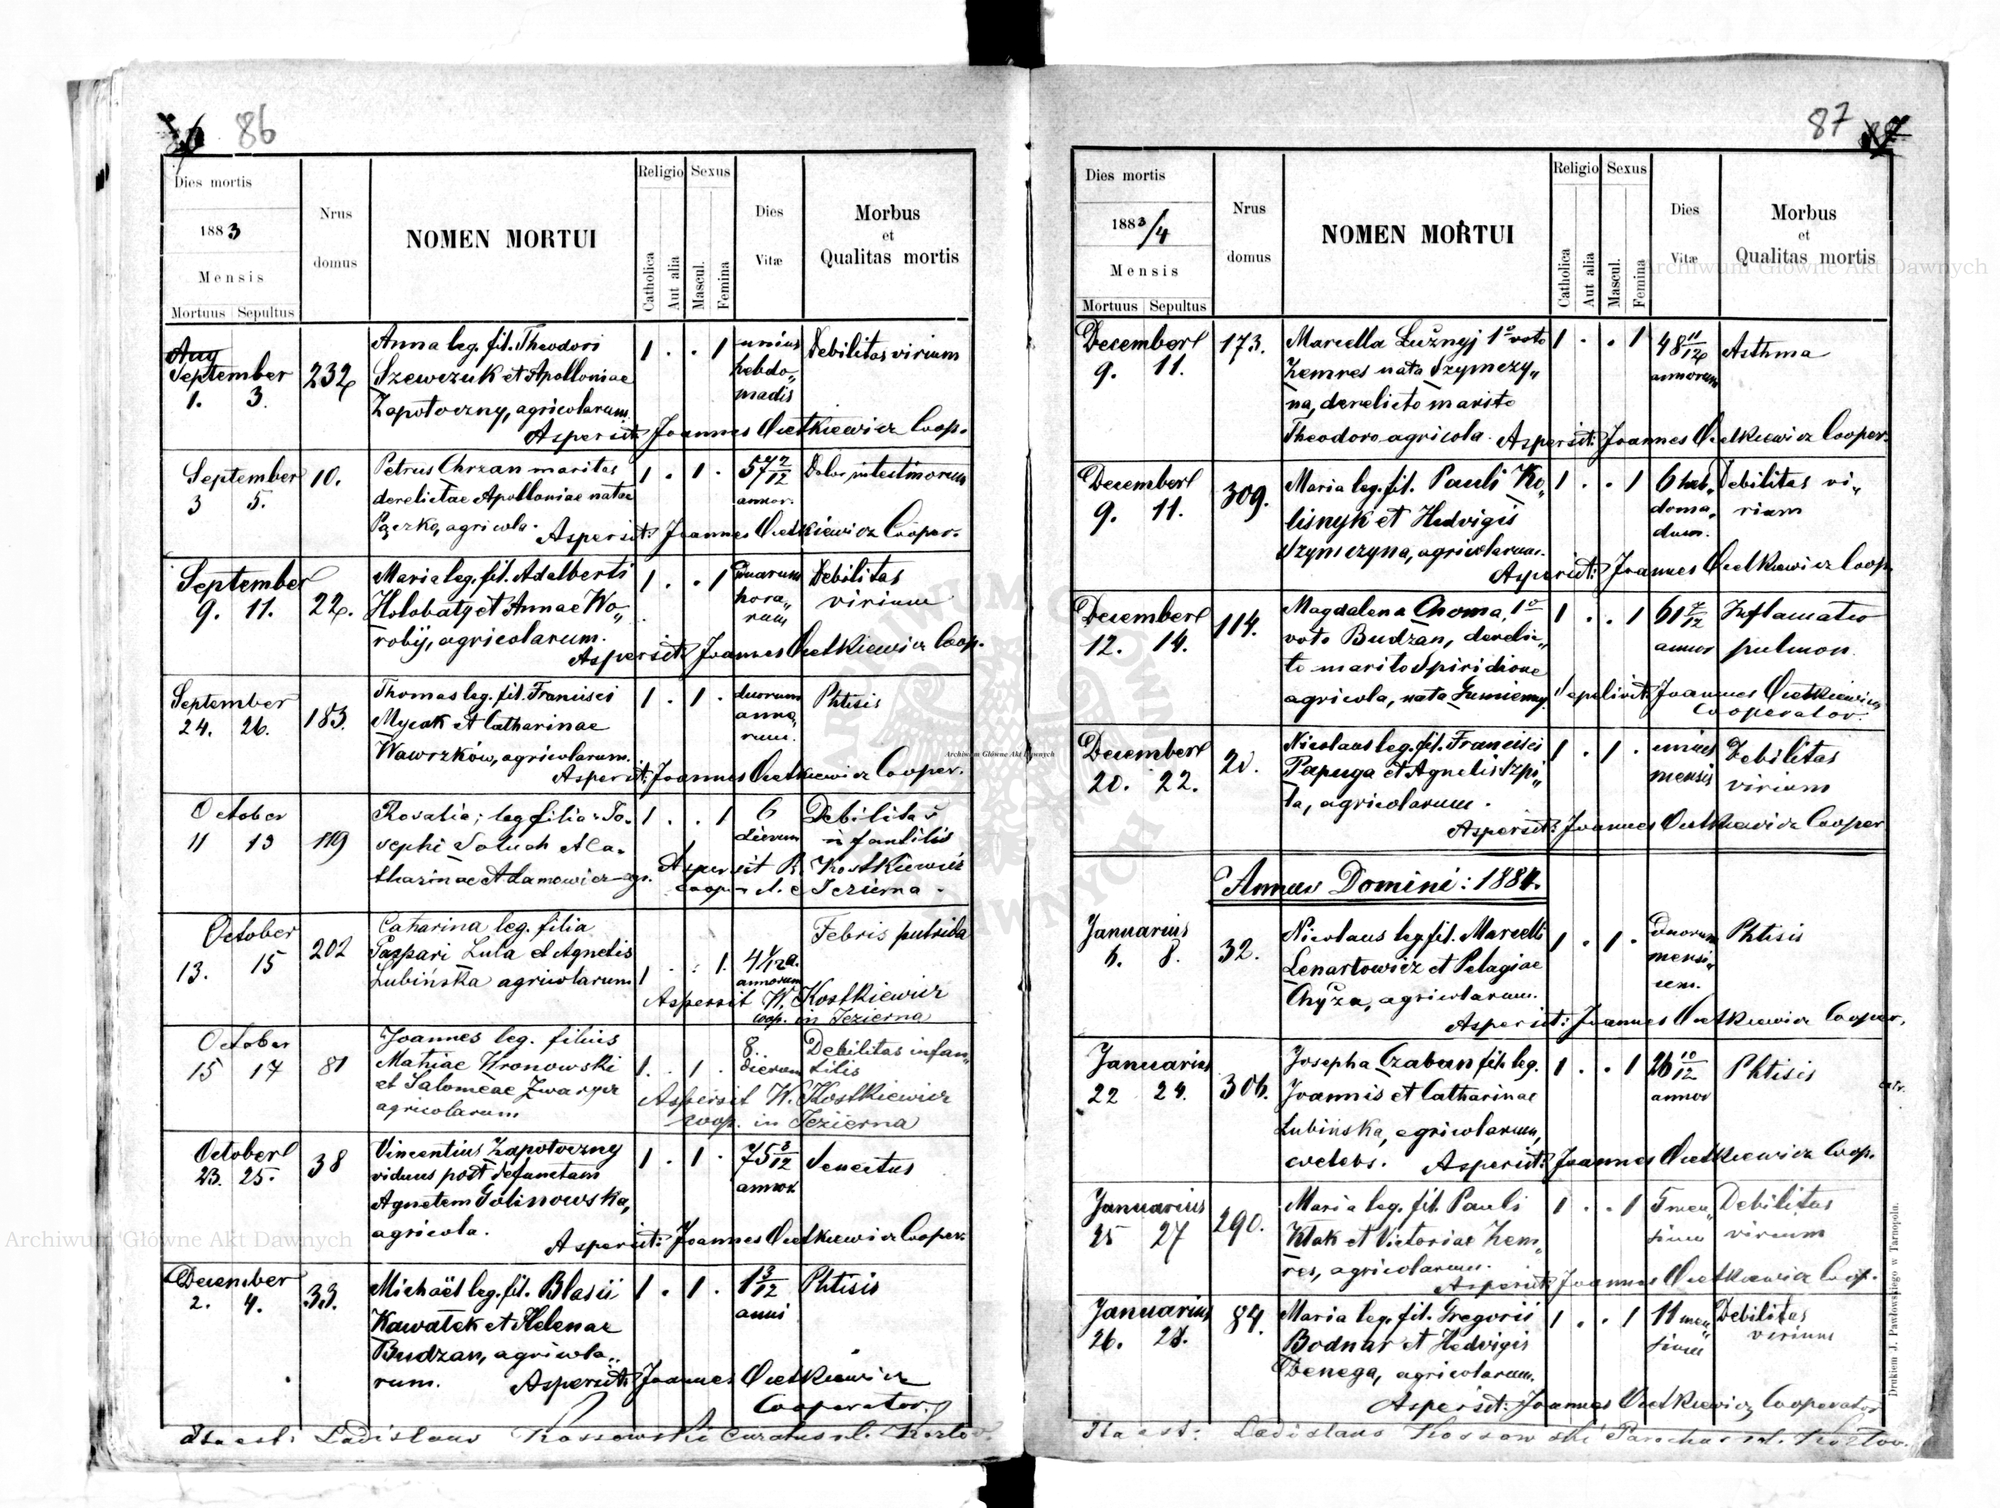 86
Dies mortis
1883
Mensis
Mortuus Sepultus
Nrus domus
NOMEN MORTUI
Religio
Catholica
Aut alia
Sexus
Mascul.
Femina
Dies Vitæ
Morbus
et
Qualitas mortis
Aug
September 232 Anna leg. fil. Theodori 1 . . 1 unius Debilitas virium
1. 3. Szewczuk et Apolloniae hebdo„
Zapotoczny, agricolarum. madis
Aspersit: Joannes Coop.
September 10. Petrus Chrzan maritus 1 . 1 . 57 7/12 Dolor intestinorum
3 5. derelictae Apolloniae natae annor.
Pączka, agricola. Aspersit: Joannes Cooper.
September 22. Maria leg. fil. Adalberti 1 . . 1 Duarum Debilitas
9. 11. Holobaty et Annae Wo„ hora„ virium
robij, agricolarum. rum
Aspersit: Joannes Coop.
September 183. Thomas leg. fil. Francisci 1 . 1 . duorum Phtisis
24. 26. Mycak et Catharinae anno„
Wawrzków, agricolarum. rum.
Aspersit: Joannes Cooper.
October 119 Rosalia; leg filia Jo- 1 . . 1 6 Debilitas
11 13 sephi et Ca- dierum infantilis
tharinae Adamowicz agr. Aspersit Kostkiewicz
coop. Jezierna
October 202 Catharina leg. filia Febris putrida
13. 15 Gaspari Lula et Agnetis 4 1/12 a.
Lubińska agricolarum 1 . . 1. annorum
Aspersit W. Kostkiewicz
coop. in Jezierna
October 81 Joannes leg. filius 8. Debilitas infan„
15 17 Mathiae Kronowski 1. . 1 . dierum tilis
et Salomeae Zwarycz Aspersit W. Kostkiewicz
agricolarum coop. in Jezierna
October 38 Vincentius Zapotoczny 1 . 1 . 75 8/12 Senectus
23. 25. viduus post defunctam annor.
Agnetem Golinowska,
agricola. Aspersit: Joannes Cooper.
December 33. Michaël leg. fil. Blasii 1 . 1 . 1 3/12 Phtisis
2. 4. Kawałek et Helenae anni
Budzan, agricola„
rum. Aspersit: Joannes
Cooperator.
Ita est: Ladislaus Kossowski Curatus r. l. Kozlov.
87
Dies mortis
1883/4
Mensis
Mortuus Sepultus
Nrus domus
NOMEN MORTUI
Religio
Catholica
Aut alia
Sexus
Mascul.
Femina
Dies Vitæ
Morbus
et
Qualitas mortis
December 173. Marcella Łužnyj 1o voto 1 . . 1 48 11/12 Asthma
9. 11. Kemres nata Szymczy„ annorum
na, derelicto marito
Theodoro agricola. Aspersit: Joannes Cooper.
December 309. Maria leg. fil. Pauli Ko„ 1 . . 1 6 heb„ Debilitas vi„
9. 11. lisnyk et Hedvigis doma„ rium
Szymczyna, agricolarum. dum.
Aspersit: Joannes Coop.
December 114. Magdalena Choma, 1o 1 . . 1 61 7/12 Inflamatio
12. 14. voto Budzan, derelic„ annor pulmon.
to marito Spiridione
agricola, nata Gumienny Sepelivit: Joannes
Cooperator.
December 20. Nicolaus leg. fil. Francisci 1 . 1 . unius Debilitas
20. 22. Papuga et Agnetis Szpi„ mensis virium
ta, agricolarum.
Aspersit: Joannes Cooper
Annus Domini: 1884.
Januarius 32. Nicolaus leg. fil. Marcelli 1 . 1 . Duorum Phtisis
6. 8. Lenartowicz et Pelagiae mensi„
Chyża, agricolarum. um.
Aspersit: Joannes Cooper.
Januarius 306. Josepha Czaban fil. leg. 1 . . 1 26 10/12 Phtisis
22 24. Joannis et Catharinae annor
Lubińska, agricolarum,
coelebs. Aspersit: Joannes Coop.
Januarius 290. Maria leg. fil. Pauli 1 . . 1 5 men„ Debilitas
25 27 Kłak et Victoriae Kem„ sium virium
res, agricolarum.
Aspersit: Joannes Coop.
Januarius 84. Maria leg. fil. Gregorii 1 . . 1 11 men„ Debilitas
26. 28. Bodnar et Hedvigis sium virium
Denega, agricolarum.
Aspersit: Joannes Cooperator
Ita est: Ladislaus Kossowski Parochus r. l. Kozlov.
Drukiem J. Pawłowskiego w Tarnopolu.
Archiwum Główne Akt Dawnych
Archiwum Główne Akt Dawnych
Archiwum Główne Akt Dawnych
ARCHIWUM GŁÓWNE AKT DAWNYCH